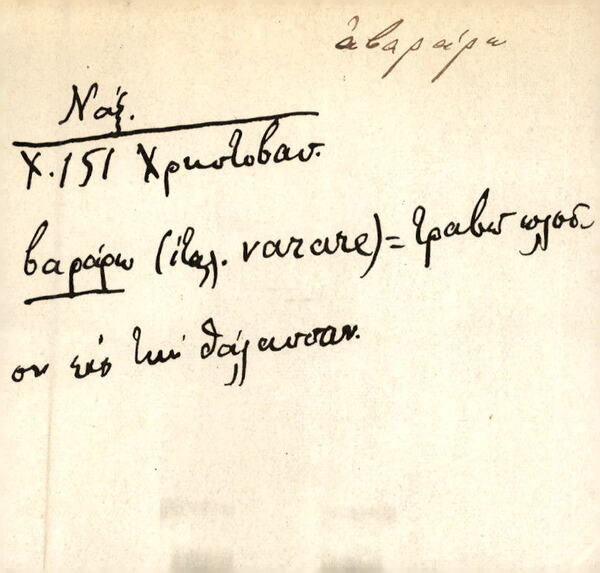 ἀβαράρω
Νάξ.
Χ. 151 Χρηστοβασ.
βαράρω (ἰταλ. varare) = τραβῶ πλοῖ-
ον εἰς τὴν θάλασσαν.